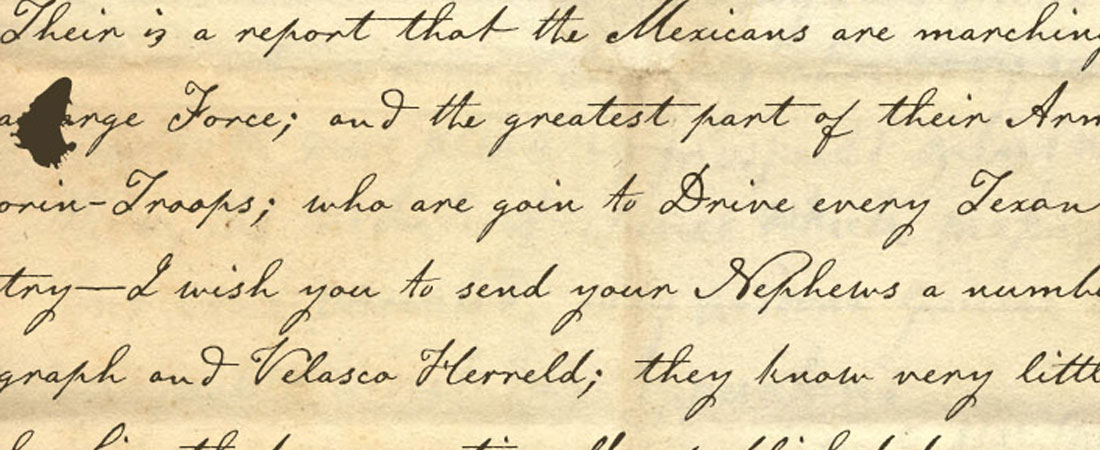 Their is a report that the Mexicans are marching
a large Force; and the greatest part of their Arm
orin-Troops; who are goin to Drive every Texan
try—I wish you to send your Nephews a numbe
graph and Velasco Herreld; they know very littl